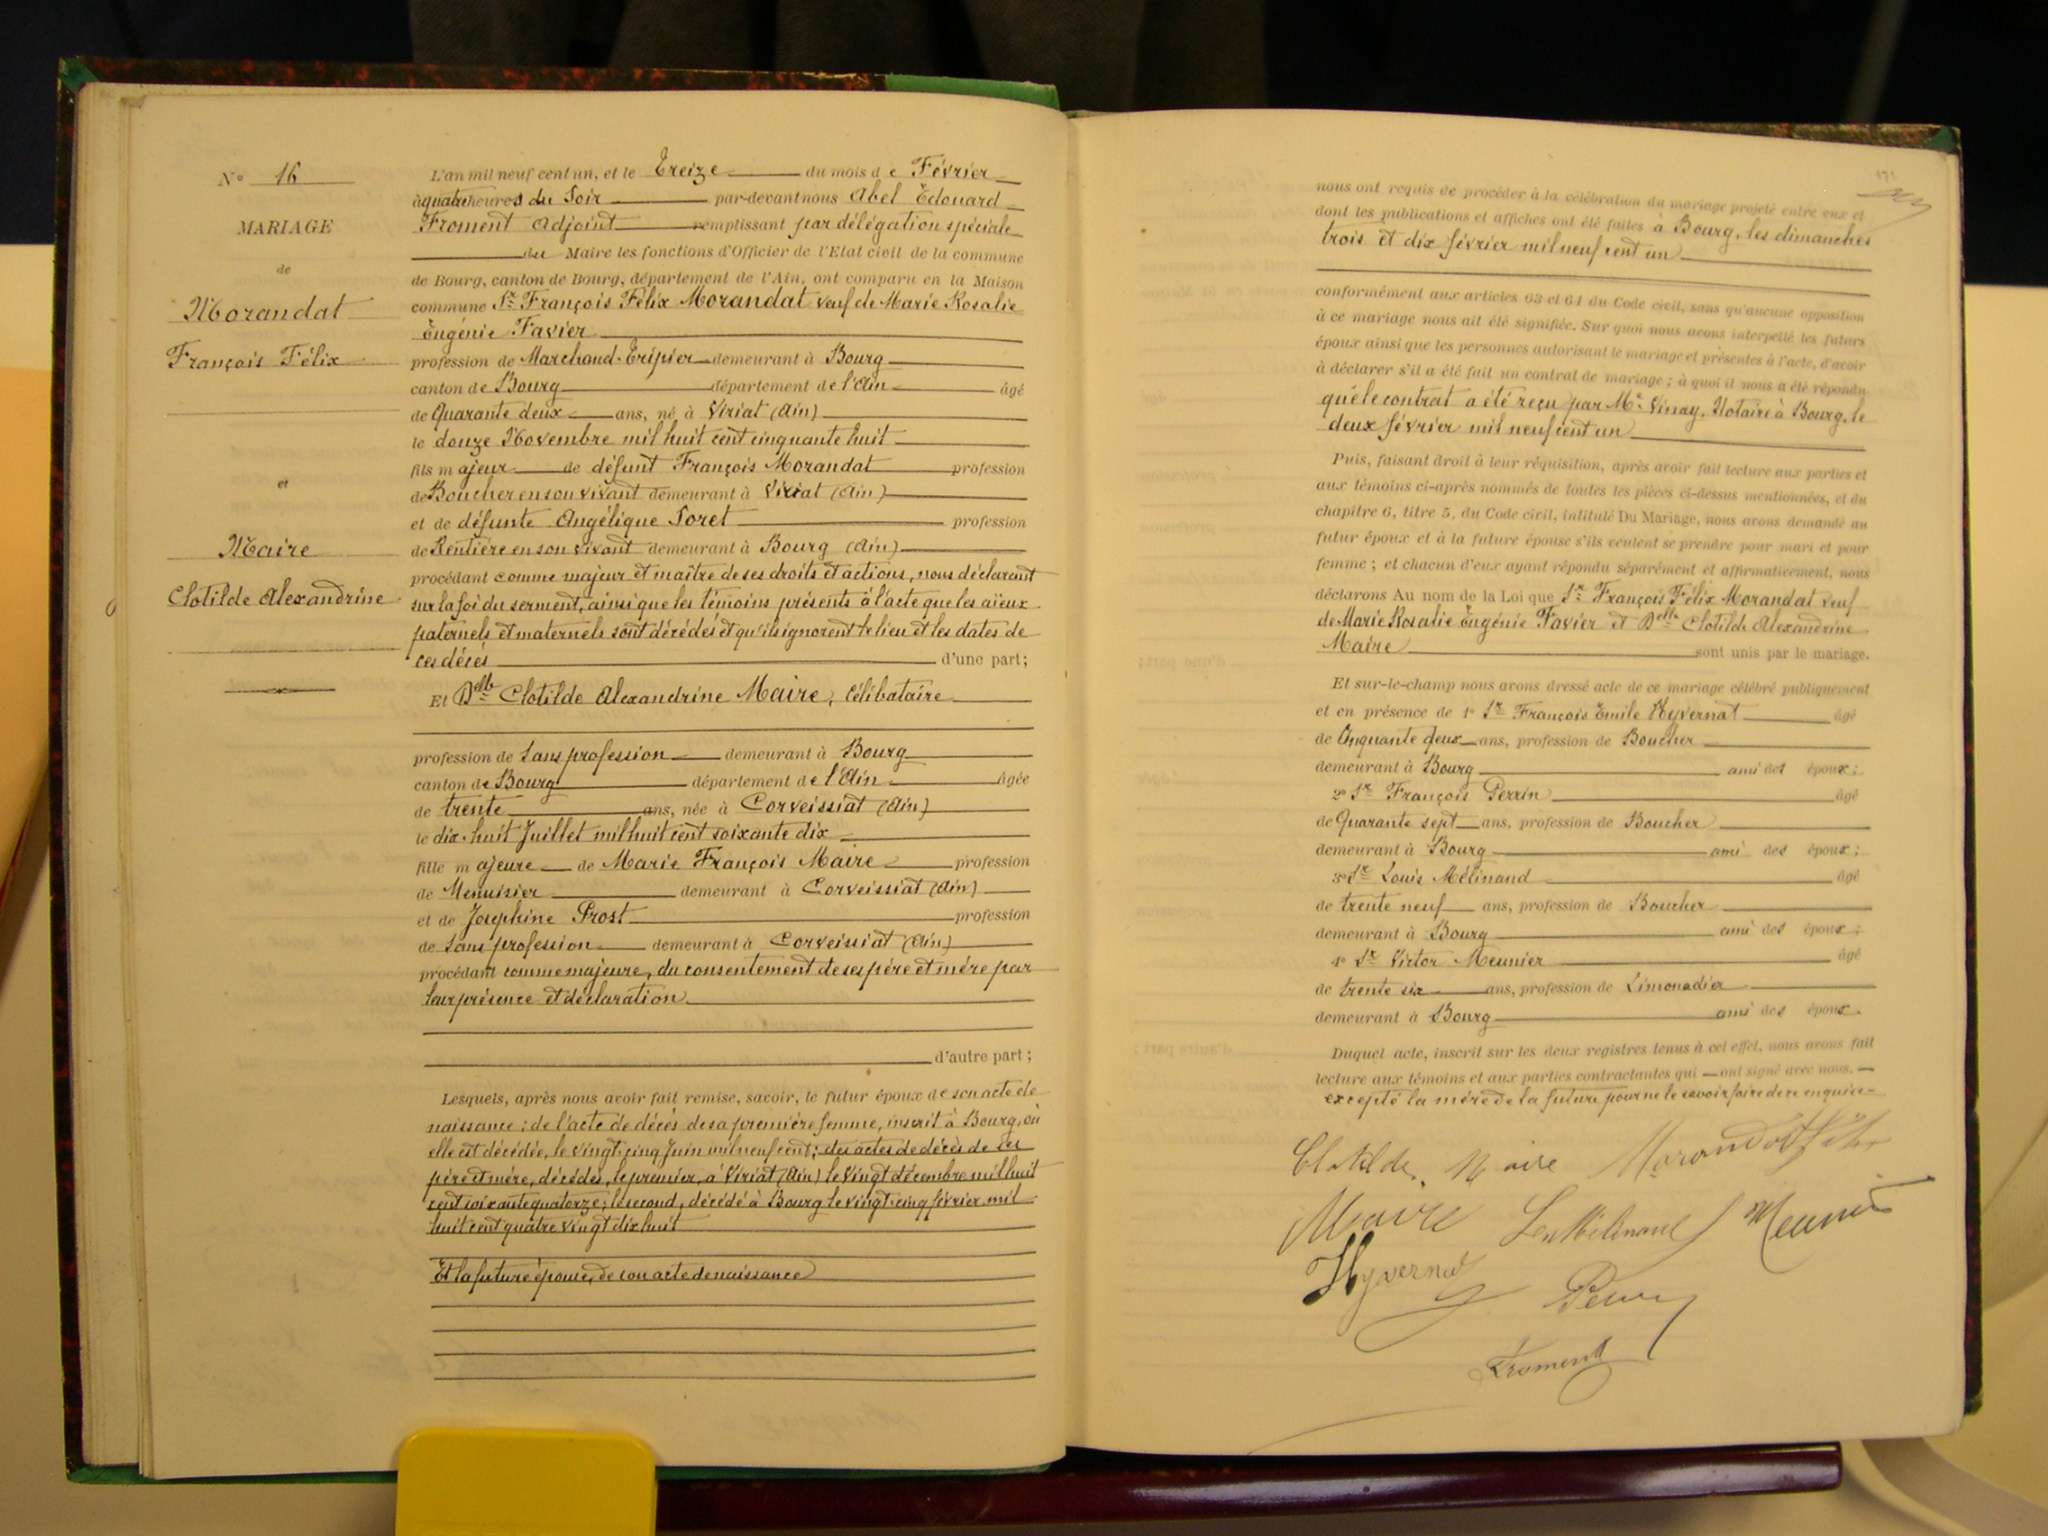 N° 16
MARIAGE
de
Morandat
François Félix
et
Maire
Clotilde Alexandrine
L'an mil neuf cent un, et le Treize du mois de Février
à quatre heures du Soir par-devant nous Abel Edouard
Froment Adjoint remplissant par délégation spéciale
du Maire les fonctions d'Officier de l'Etat civil de la commune
de Bourg, canton de Bourg, département de l'Ain, ont comparu en la Maison
commune Sr François Félix Morandat veuf de Marie Rosalie
Eugénie Favier
profession de Marchand-Tripier demeurant à Bourg
canton de Bourg département de l'Ain âgé
de Quarante deux ans, né à Viriat (Ain)
le douze Novembre mil huit cent cinquante huit
fils majeur de défunt François Morandat profession
de Boucher en son vivant demeurant à Viriat (Ain)
et de défunte Angélique Soret profession
de Rentière en son vivant demeurant à Bourg (Ain)
procédant comme majeur et maître de ses droits et actions, nous déclarant
sur la foi du serment, ainsi que les témoins présents à l'acte que les aïeux
paternels et maternels sont décédés et qu'ils ignorent le lieu et les dates de
ces décès d'une part;
Et Delle Clotilde Alexandrine Maire, célibataire
profession de Sans profession demeurant à Bourg
canton de Bourg département de l'Ain âgée
de trente ans, née à Corveissiat (Ain)
le dix-huit Juillet mil huit cent soixante dix
fille majeure de Marie François Maire profession
de Menuisier demeurant à Corveissiat (Ain)
et de Joséphine Prost profession
de Sans profession demeurant à Corveissiat (Ain)
procédant comme majeure, du consentement de ses père et mère par
leur présence et déclaration
d'autre part;
Lesquels, après nous avoir fait remise, savoir, le futur époux de son acte de
naissance; de l'acte de décès de sa première femme, inscrit à Bourg, où
elle est décédée, le vingt-cinq Juin mil neuf cent; des actes de décès de ses
père et mère, décédés, le premier, à Viriat (Ain) le vingt décembre mil huit
cent soixante quatorze; le second, décédé à Bourg le vingt-cinq février mil
huit cent quatre vingt dix huit
Et la future épouse, de son acte de naissance
171
nous ont requis de procéder à la célébration du mariage projeté entre eux et
dont les publications et affiches ont été faites à Bourg, les dimanches
trois et dix février mil neuf cent un
conformément aux articles 63 et 64 du Code civil, sans qu'aucune opposition
à ce mariage nous ait été signifiée. Sur quoi nous avons interpellé les futurs
époux ainsi que les personnes autorisant le mariage et présentes à l'acte, d'avoir
à déclarer s'il a été fait un contrat de mariage; à quoi il nous a été répondu
que le contrat a été reçu par Me Vinay, Notaire à Bourg, le
deux février mil neuf cent un
Puis, faisant droit à leur réquisition, après avoir fait lecture aux parties et
aux témoins ci-après nommés de toutes les pièces ci-dessus mentionnées, et du
chapitre 6, titre 5, du Code civil, intitulé Du Mariage, nous avons demandé au
futur époux et à la future épouse s'ils veulent se prendre pour mari et pour
femme; et chacun d'eux ayant répondu séparément et affirmativement, nous
déclarons Au nom de la Loi que Sr François Félix Morandat veuf
de Marie Rosalie Eugénie Favier et Delle Clotilde Alexandrine
Maire sont unis par le mariage.
Et sur-le-champ nous avons dressé acte de ce mariage célébré publiquement
et en présence de 1° Sr François Emile Hyvernat âgé
de Cinquante deux ans, profession de Boucher
demeurant à Bourg ami des époux;
2° Sr François Perrin âgé
de Quarante sept ans, profession de Boucher
demeurant à Bourg ami des époux;
3° Sr Louis Mélinand âgé
de trente neuf ans, profession de Boucher
demeurant à Bourg ami des époux;
4° Sr Victor Meunier âgé
de trente six ans, profession de Limonadier
demeurant à Bourg ami des époux.
Duquel acte, inscrit sur les deux registres tenus à cet effet, nous avons fait
lecture aux témoins et aux parties contractantes qui ont signé avec nous.
excepté la mère de la future pour ne le savoir faire de ce enquise
Clotilde Maire Morandat Félix
Maire Mélinand Meunier
Hyvernat Perrin
Froment